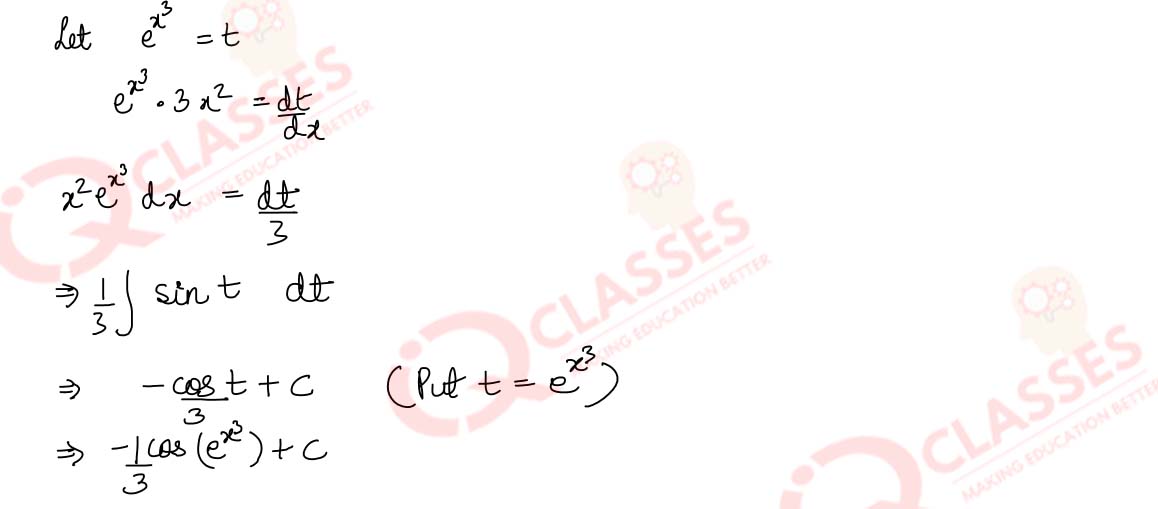 Let e^{x^3} = t
e^{x^3} · 3x^2 = dt/dx
x^2 e^{x^3} dx = dt/3
⇒ 1/3 ∫ sin t dt
⇒ -cos t/3 + C (Put t = e^{x^3})
⇒ -1/3 cos (e^{x^3}) + C
CLASSES
MAKING EDUCATION BETTER
CLASSES
MAKING EDUCATION BETTER
CLASSES
MAKING EDUCATION BETTER